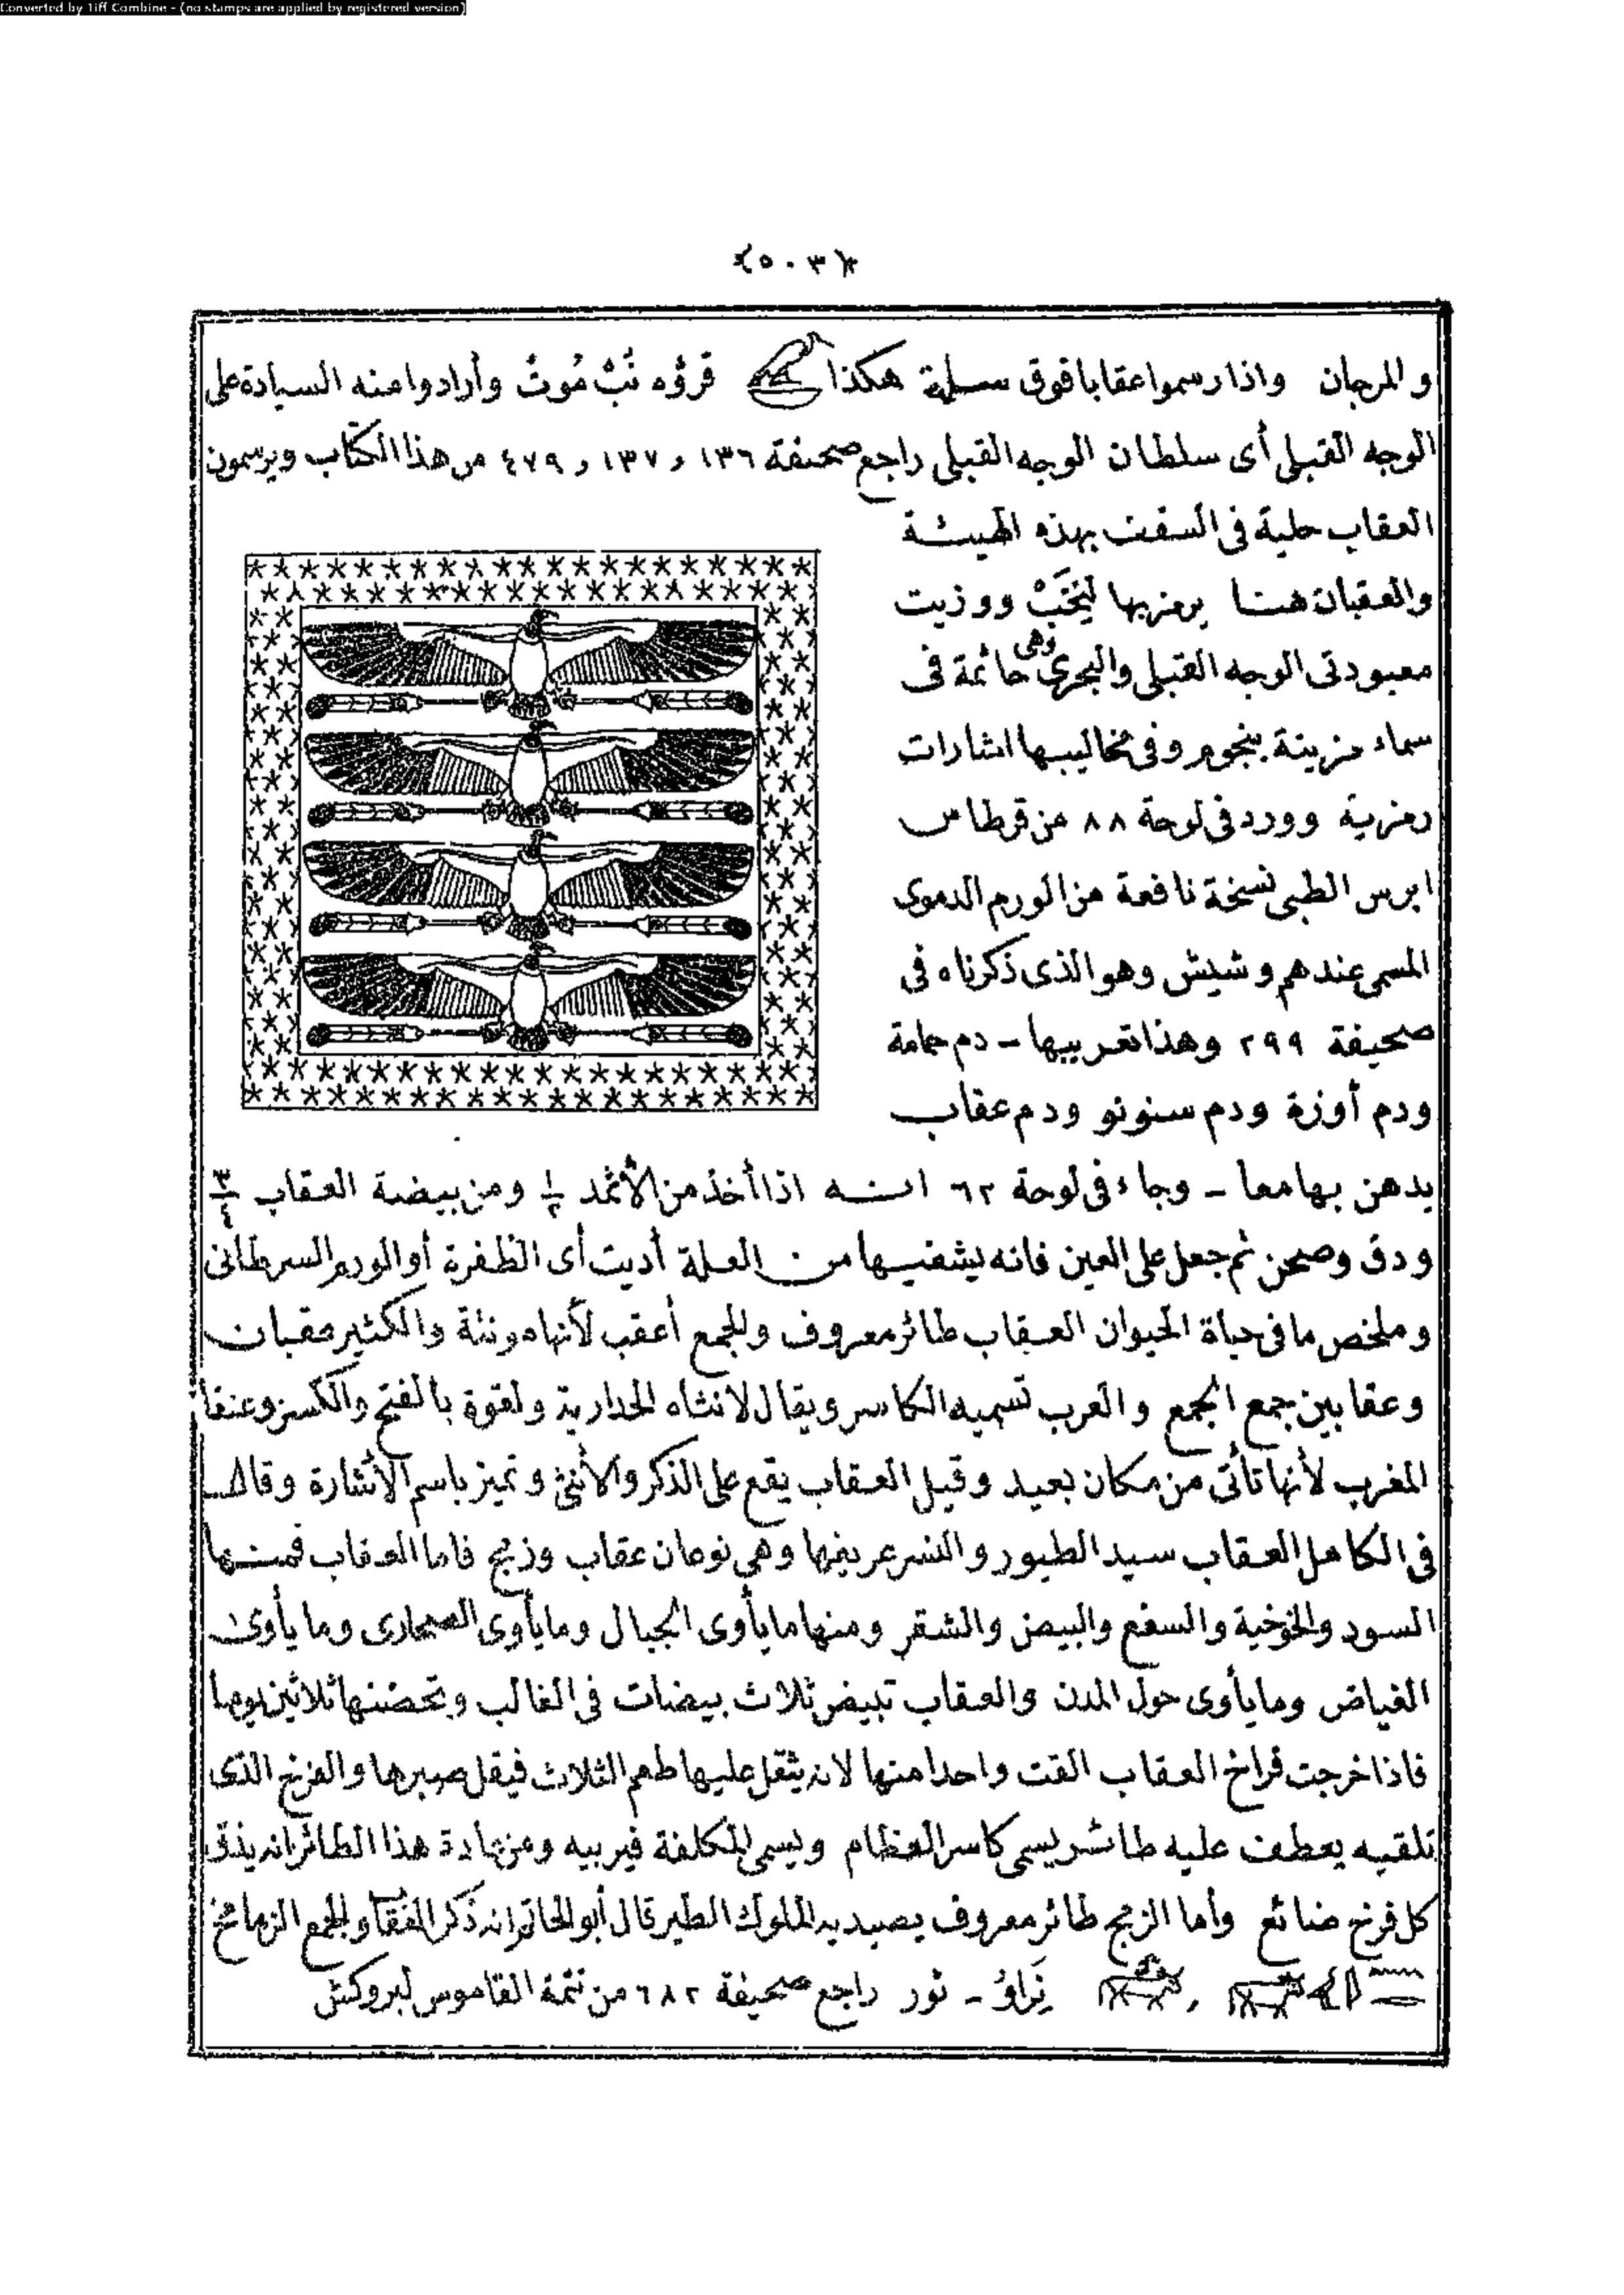 Converted by Tiff Combine - (no stamps are applied by registered version)
﴿٥٠٣﴾
والمرجان واذا رسموا عقابا فوق سلة هكذا قرؤه نَبْ مُوتْ وأرادوا منه السيادة على
الوجه القبلى أى سلطان الوجه القبلى راجع صحيفة ١٣٦ و ١٣٧ و ٤٧٩ من هذا الكتاب ويرسمون
العقاب حلية فى السقف بهذه الهيئة
والعقبان هنا يرمز بها لِنِخَبْ ووزيت
معبودتى الوجه القبلى والبحرى وهى حائمة فى
سماء مزينة بنجوم وفى مخاليبها اشارات
رمزية وورد فى لوحة ٨٨ من قرطاس
ابرس الطبى نسخة نافعة من الورم الدموى
المسمى عندهم وشيش وهو الذى ذكرناه فى
صحيفة ٢٩٩ وهذا تعريبها – دم حمامة
ودم أوزة ودم سنونو ودم عقاب
يدهن بها معا – وجاء فى لوحة ٦٢ انه اذا أخذ من الأثمد ١/٢ ومن بيضة العقاب ٣/٤
ودق وصحن ثم جعل على العين فانه يشفيها من العلة أديت أى الظفرة أو الورم السرطانى
وملخص ما فى حياة الحيوان العقاب طائر معروف والجمع أعقب لأنها مونثة والكثير عقبان
وعقابين جمع الجمع والعرب تسميه الكاسر ويقال لانثاه الخدارية ولقوة بالفتح والكسر وعنقا
المغرب لأنها تأتى من مكان بعيد وقيل العقاب يقع على الذكر والأنثى وتميز باسم الأشارة وقال
فى الكامل العقاب سيد الطيور والنسر عريفها وهى نوعان عقاب وزمج فاما العقاب فمنها
السود والخوخية والسفع والبيض والشقر ومنها ما يأوى الجبال وما يأوى الصحارى وما يأوى
الغياض وما يأوى حول المدن والعقاب تبيض ثلاث بيضات فى الغالب وتحضنها ثلاثين يوما
فاذا خرجت فراخ العقاب القت واحدا منها لانه يثقل عليها طعم الثلاث فيقل صبرها والفرخ الذى
تلقيه يعطف عليه طائر يسمى كاسر العظام ويسمى المكلفة فيربيه ومن عادة هذا الطائر انه يزق
كل فرخ ضائع وأما الزمج طائر معروف يصيد به الملوك الطير قال أبو الحاتم انه ذكر العُقاب والجمع الزمامخ
نِراوُ – ثور راجع صحيفة ٦٨٢ من تتمة القاموس لبروكش